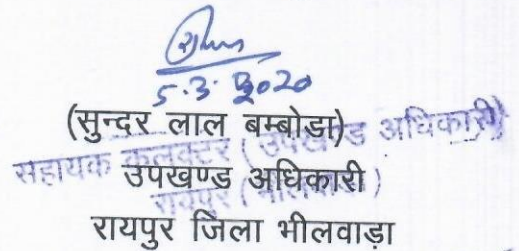 5.3.2020
(सुन्दर लाल बम्बोडा)
सहायक कलक्टर (उपखण्ड अधिकारी)
उपखण्ड अधिकारी
रायपुर (भीलवाड़ा)
रायपुर जिला भीलवाड़ा